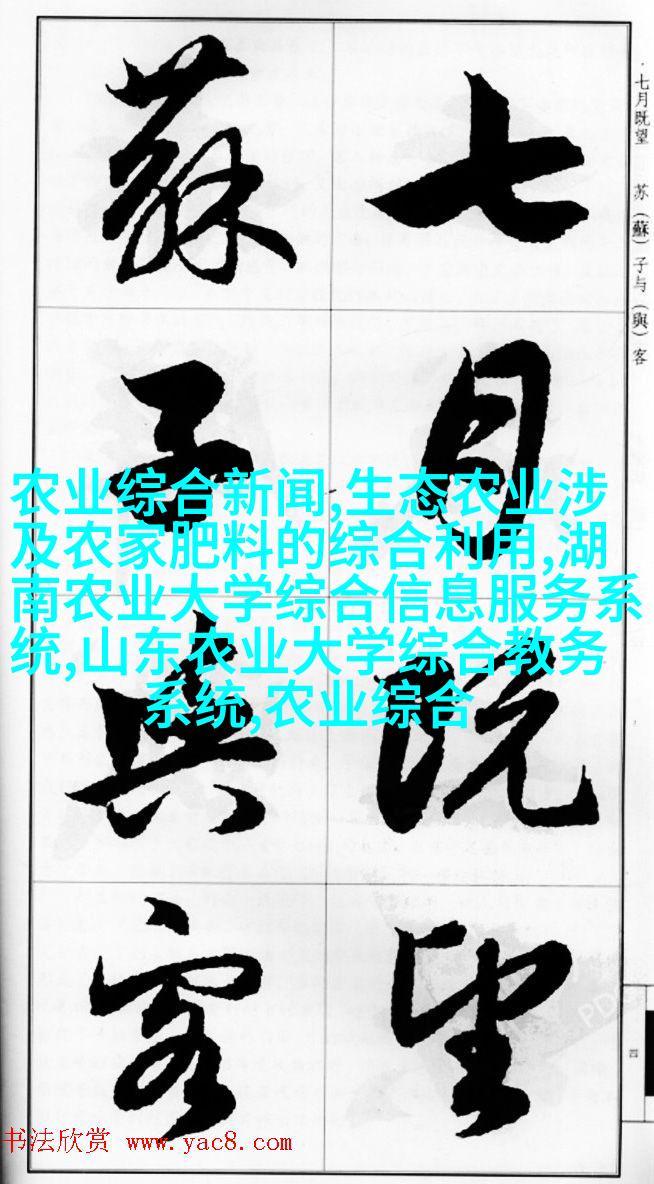 七月既望
蘇子與客
·七月既望 苏（蘇）子与（與）客
农业综合新闻,生态农业涉
及农家肥料的综合利用,湖
南农业大学综合信息服务系
统,山东农业大学综合教务
系统,农业综合
四
PD
书法欣赏 www.yac8.com